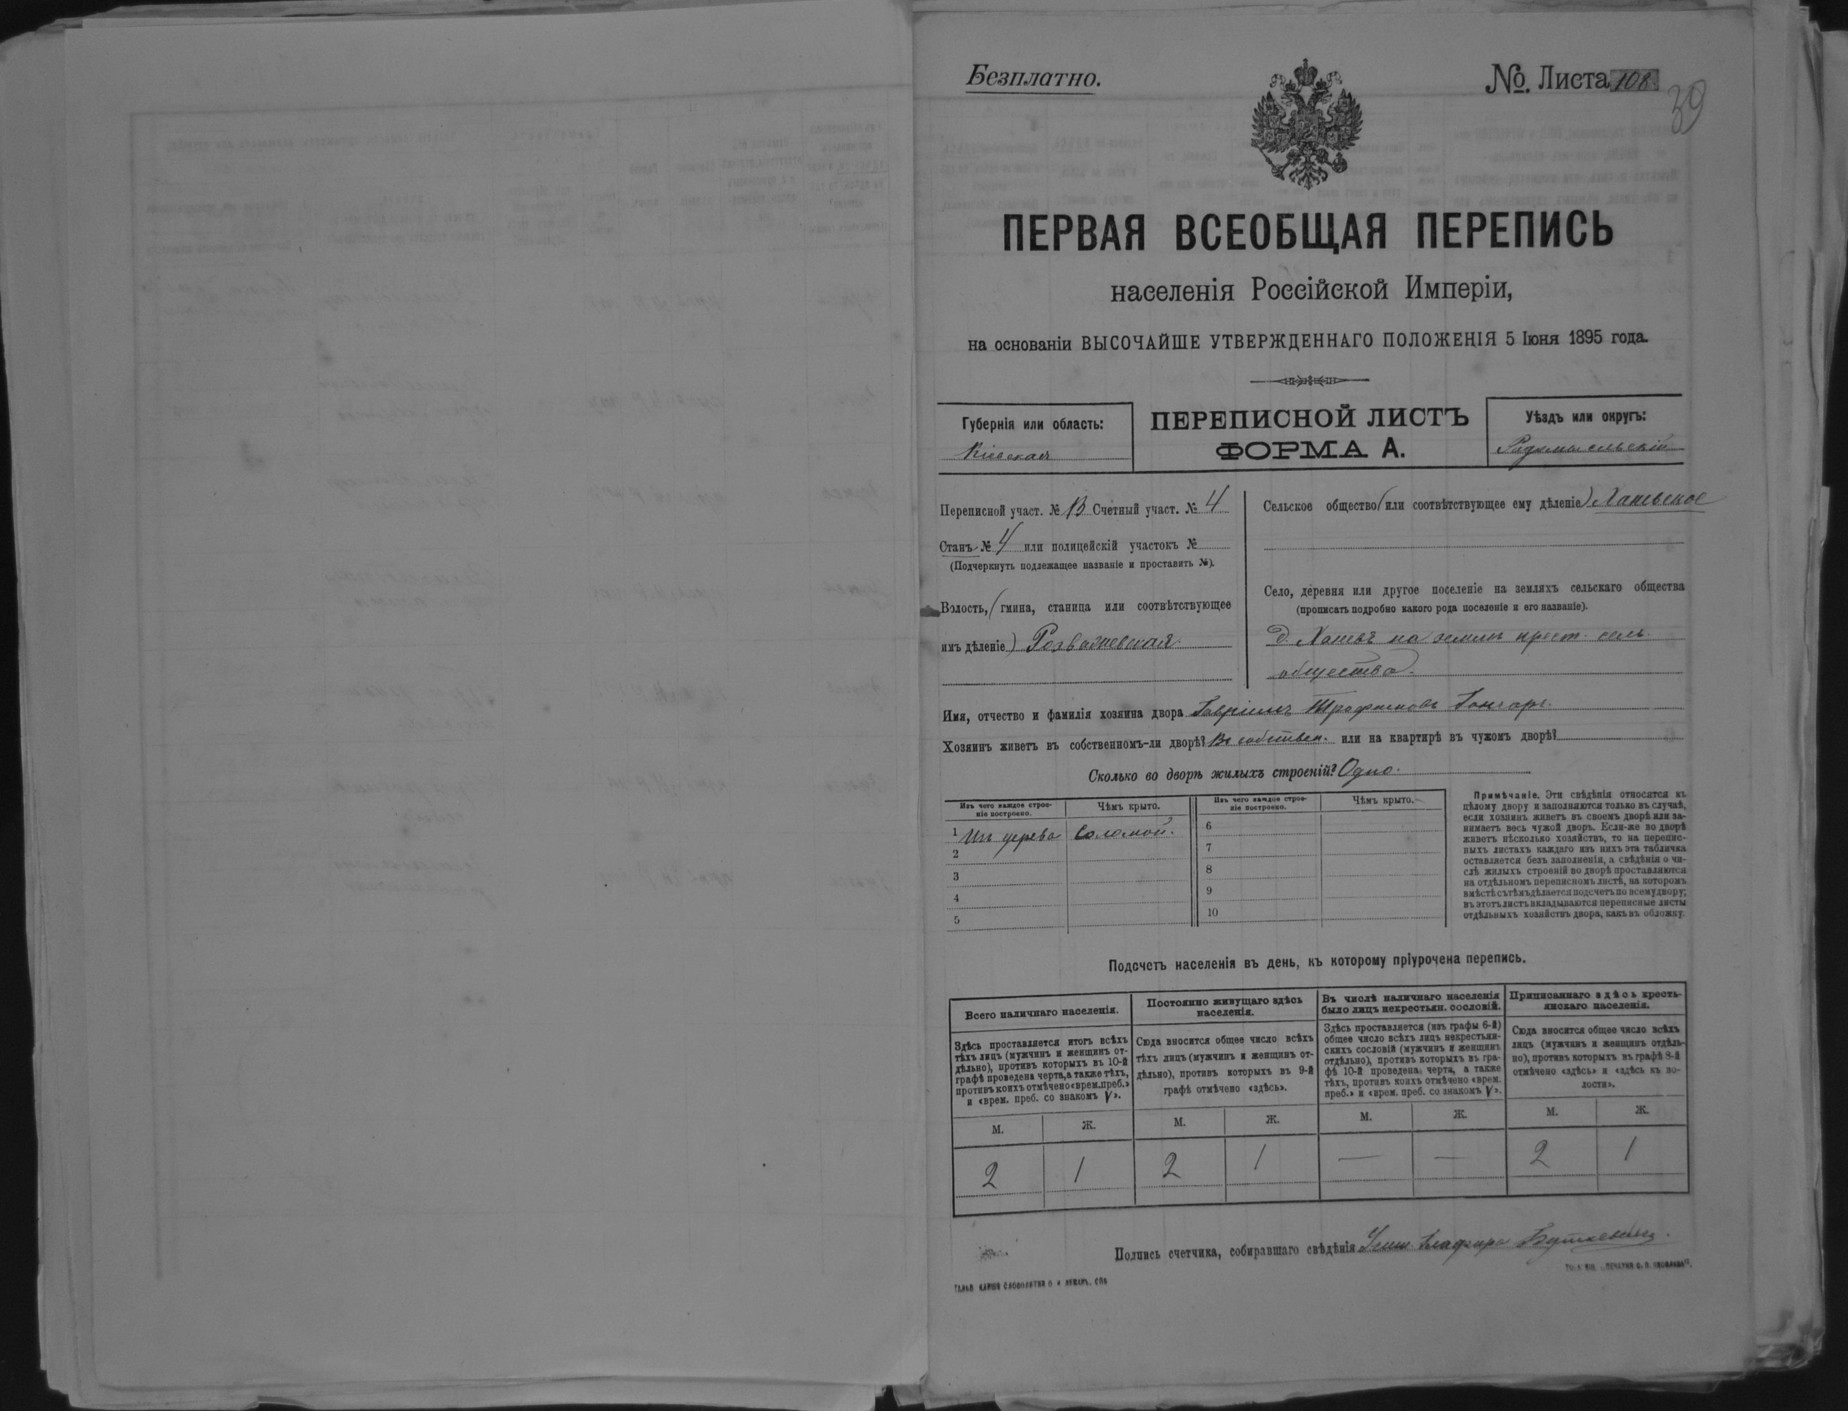 Безплатно.
№. Листа 108
39
ПЕРВАЯ ВСЕОБЩАЯ ПЕРЕПИСЬ
населенія Россійской Имперіи,
на основаніи ВЫСОЧАЙШЕ УТВЕРЖДЕННАГО ПОЛОЖЕНІЯ 5 Іюня 1895 года.
Губернія или область:
Кіевская
ПЕРЕПИСНОЙ ЛИСТЪ
ФОРМА А.
Уѣздъ или округъ:
Радомысльскій
Переписной участ. № Счетный участ. № 4
Станъ № 4 или полицейскій участокъ №
(Подчеркнуть подлежащее названіе и проставить №).
Волость, (гмина, станица или соотвѣтствующее
имъ дѣленіе) Розважевская
Сельское общество (или соотвѣтствующее ему дѣленіе)
Село, деревня или другое поселеніе на земляхъ сельскаго общества
(прописать подробно какого рода поселеніе и его названіе).
д. на земли крест. сель.
общества.
Имя, отчество и фамилія хозяина двора Гавріилъ Трофимовъ Гончаръ.
Хозяинъ живетъ въ собственномъ-ли дворѣ? Въ собствен. или на квартирѣ въ чужомъ дворѣ?
Сколько во дворѣ жилыхъ строеній? Одно.
Изъ чего каждое строе-
ніе построено.
Чѣмъ крыто.
Изъ чего каждое строе-
ніе построено.
Чѣмъ крыто.
1 Изъ дерева Соломой.
2
3
4
5
6
7
8
9
10
Примѣчаніе. Эти свѣдѣнія относятся къ
цѣлому двору и заполняются только въ случаѣ,
если хозяинъ живетъ въ своемъ дворѣ или за-
нимаетъ весь чужой дворъ. Если-же во дворѣ
живетъ нѣсколько хозяйствъ, то на перепис-
ныхъ листахъ каждаго изъ нихъ эта табличка
оставляется безъ заполненія, а свѣдѣнія о чи-
слѣ жилыхъ строеній во дворѣ проставляются
на отдѣльномъ переписномъ листѣ, на которомъ
вмѣстѣ съ тѣмъ дѣлается подсчетъ по всему двору;
въ этотъ листъ вкладываются переписные листы
отдѣльныхъ хозяйствъ двора, какъ въ обложку.
Подсчетъ населенія въ день, къ которому пріурочена перепись.
Всего наличнаго населенія.
Здѣсь проставляется итогъ всѣхъ
тѣхъ лицъ (мужчинъ и женщинъ от-
дѣльно), противъ которыхъ въ 10-й
графѣ проведена черта, а также тѣхъ,
противъ коихъ отмѣчено «врем. преб.»
и «врем. преб. со знакомъ V».
Постоянно живущаго здѣсь
населенія.
Сюда вносится общее число всѣхъ
тѣхъ лицъ (мужчинъ и женщинъ от-
дѣльно), противъ которыхъ въ 9-й
графѣ отмѣчено «здѣсь».
Въ числѣ наличнаго населенія
было лицъ некрестьян. сословій.
Здѣсь проставляется (изъ графы 6-й)
общее число всѣхъ лицъ некрестьян-
скихъ сословій (мужчинъ и женщинъ
отдѣльно), противъ которыхъ въ гра-
фѣ 10-й проведена черта, а также
тѣхъ, противъ коихъ отмѣчено «врем.
преб.» и «врем. преб. со знакомъ V».
Приписаннаго здѣсь кресть-
янскаго населенія.
Сюда вносится общее число всѣхъ
лицъ (мужчинъ и женщинъ отдѣль-
но), противъ которыхъ въ графѣ 8-й
отмѣчено «здѣсь» и «здѣсь къ во-
лости».
М. Ж. М. Ж. М. Ж. М. Ж.
2 1 2 1 — — 2 1
Подпись счетчика, собиравшаго свѣдѣнія